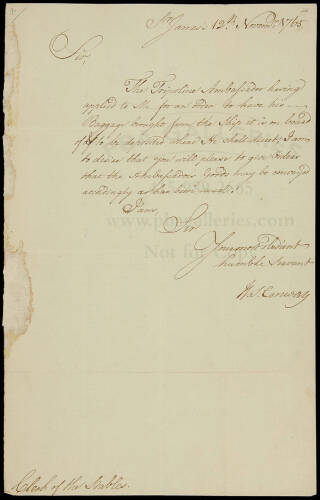 St. James's 12th. Novemr. 1765
Sir,
The Tripoline Ambassador having
applied to Me for an Order to have his
Baggage brought from the Ship it is on board
of to be deposited where He shall direct, I am
to desire that you will please to give Orders
that the Ambassadors Goods may be conveyed
accordingly as has been usual.
I am,
Sir
Your most Obedient
humble Servant
Clerk of the Stables.
Not for